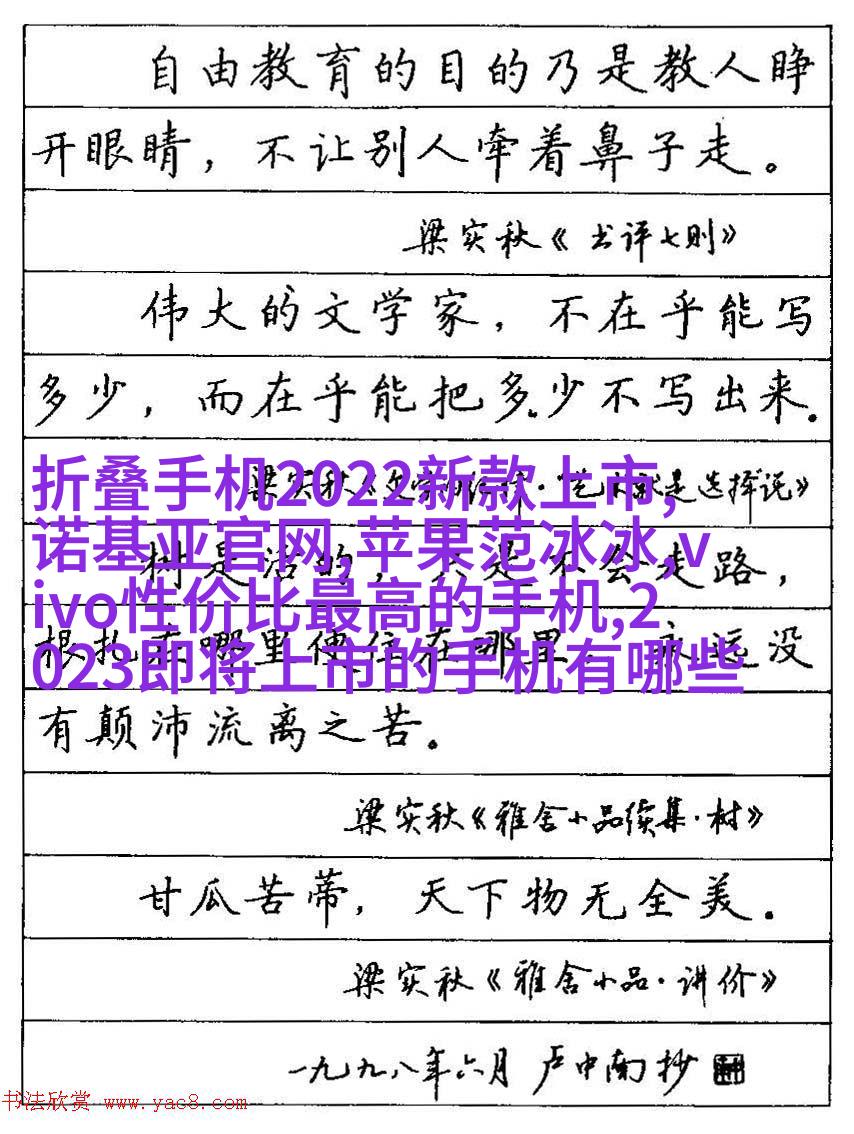 自由教育的目的乃是教人睁
开眼睛，不让别人牵着鼻子走。
梁实秋《书评七则》
伟大的文学家，不在乎能写
多少，而在乎能把多少不写出来.
梁实秋《文学的
是选择说》
折叠手机2022新款上市,
诺基亚官网,苹果范冰冰,v
ivo性价比最高的手机,2
023即将上市的手机有哪些
树是活的，只是不会走路，
根扎在哪里便住在那里，永远没
有颠沛流离之苦。
梁实秋《雅舍小品续集·树》
甘瓜苦蒂，天下物无全美.
梁实秋《雅舍小品·讲价》
一九九八年六月 卢中南抄
书法欣赏 www.yac8.com